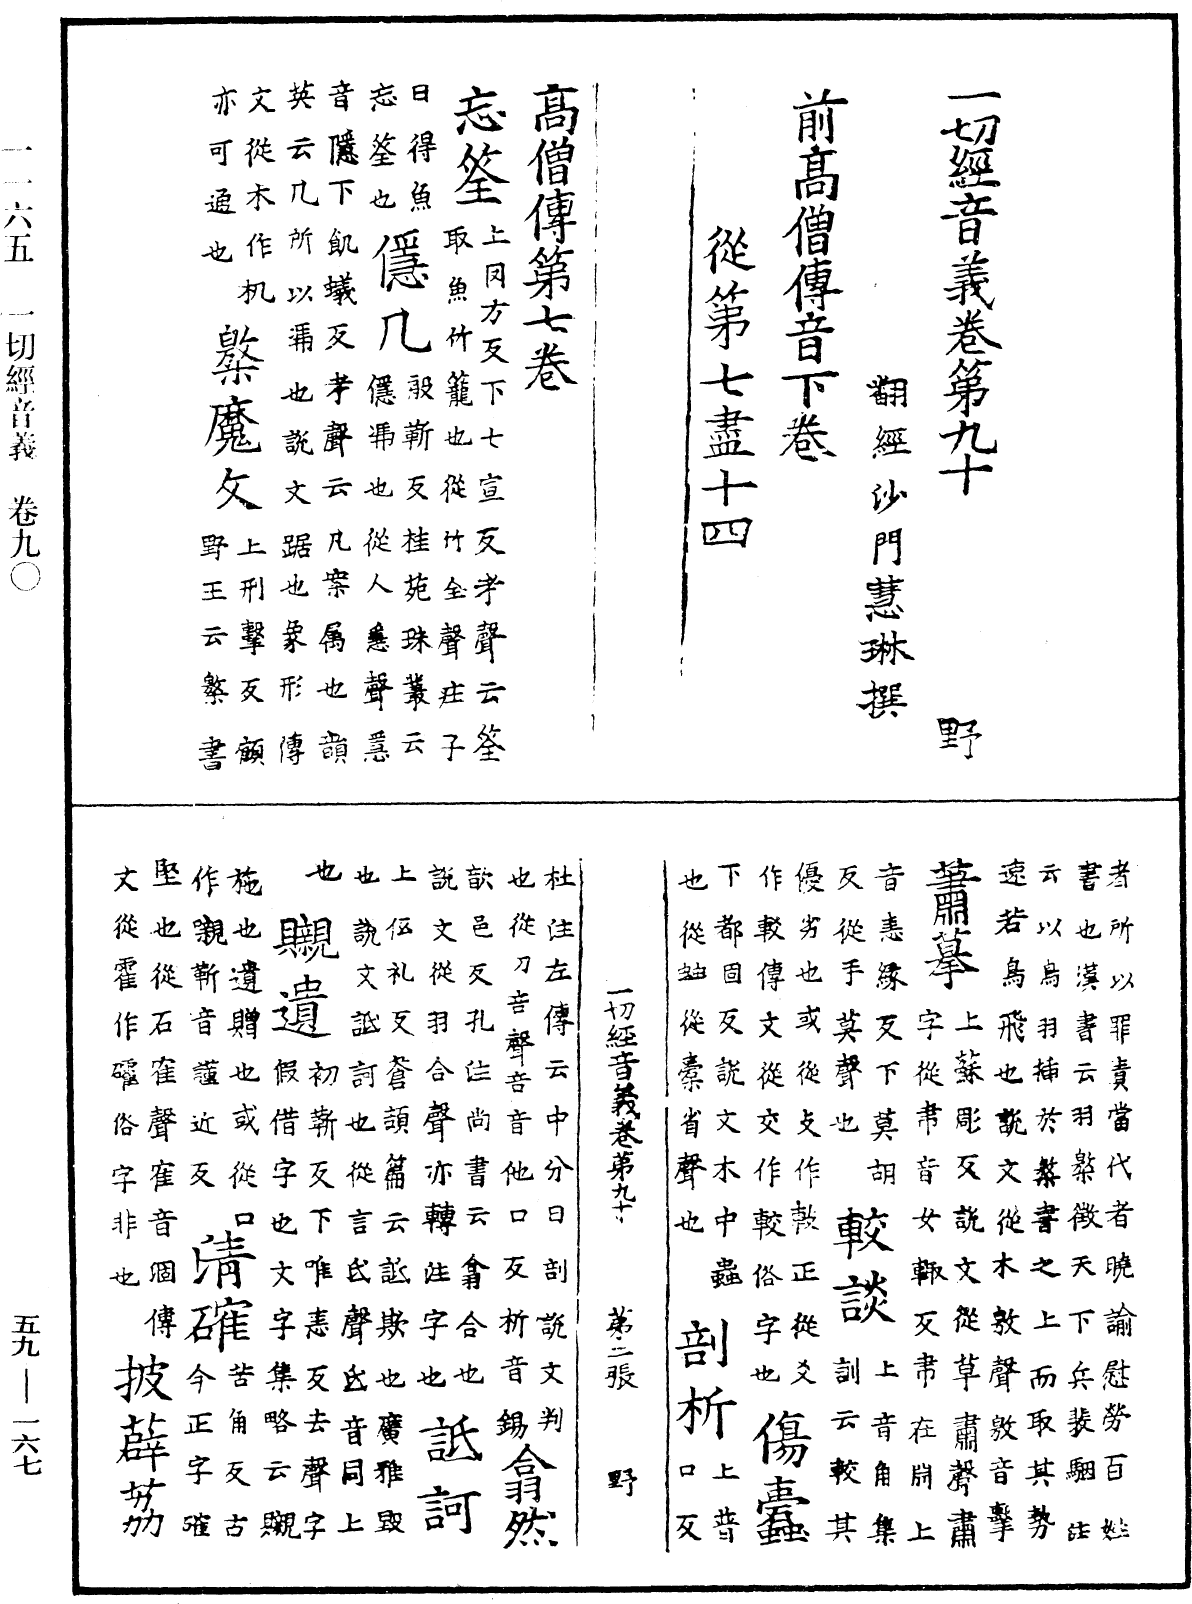 一切經音義卷第九十　野
翻經沙門慧琳撰
前高僧傳音下卷
從第七盡十四
高僧傳第七卷
忘筌上罔方反下七宣反考聲云筌
取魚竹籠也從竹全聲莊子
曰得魚忘筌也
隱几殷靳反桂苑珠叢云
隱馮也從人㥯聲㥯
音隱下飢蟻反考聲云凡案属也韻
英云几所以馮也說文踞也象形傳
文從木作机亦可通也
檠魔文上刑擊反顧
野王云檠書
者所以罪責當代者曉諭慰勞百姓
書也漢書云羽檠徵天下兵裴駰注
云以鳥羽揷於檠書之上而取其勢
遠若鳥飛也說文從木敫聲敫音擊
蕭摹上蘇彫反說文從草肅聲肅
字從𦘒音女輒反𦘒在𣶒上
音恚緣反下莫胡
反從手莫聲也
較談上音角集
訓云較其
優劣也或從攴作𢽾正從爻
作較傳文從交作較俗字也
傷蠹
下都固反說文木中蟲
也從䖵從橐省聲也
剖析上普
口反
杜注左傳云中分曰剖說文判
也從刀咅聲咅音他口反析音錫
翕然
歆邑反孔注尚書云翕合也
說文從羽合聲亦轉注字也
詆訶
上伍礼反蒼頡篇云詆欺也廣雅毀
也說文詆訶也從言氐聲氐音同上
也
䞋遺初靳反下唯恚反去聲字
假借字也文字集略云䞋
施也遺贈也或從口
作嚫靳音謹近反
清確苦角反古
今正字確
堅也從石隺聲隺音涸傳
文從霍作礭俗字非也
披薜荔
一切經音義卷第九十　第二張　野
一一六五　一切經音義　卷九〇
五九—一六七